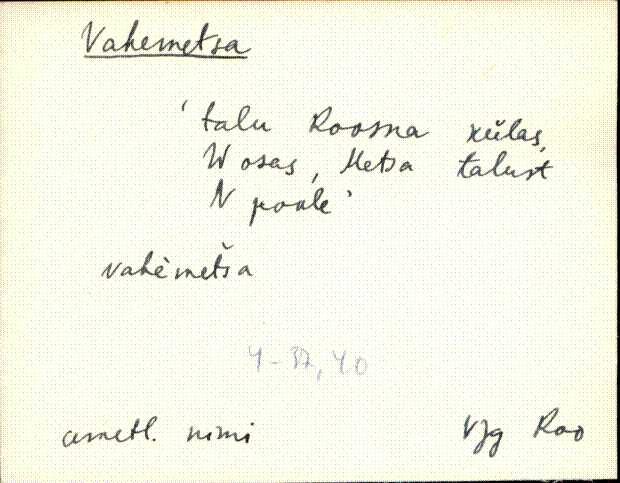 Vahemetsa
'talu Roosna külas,
W osas, Metsa talust
N poole'
vahèmetša
4-37, 40
ametl. nimi
VJg Roo